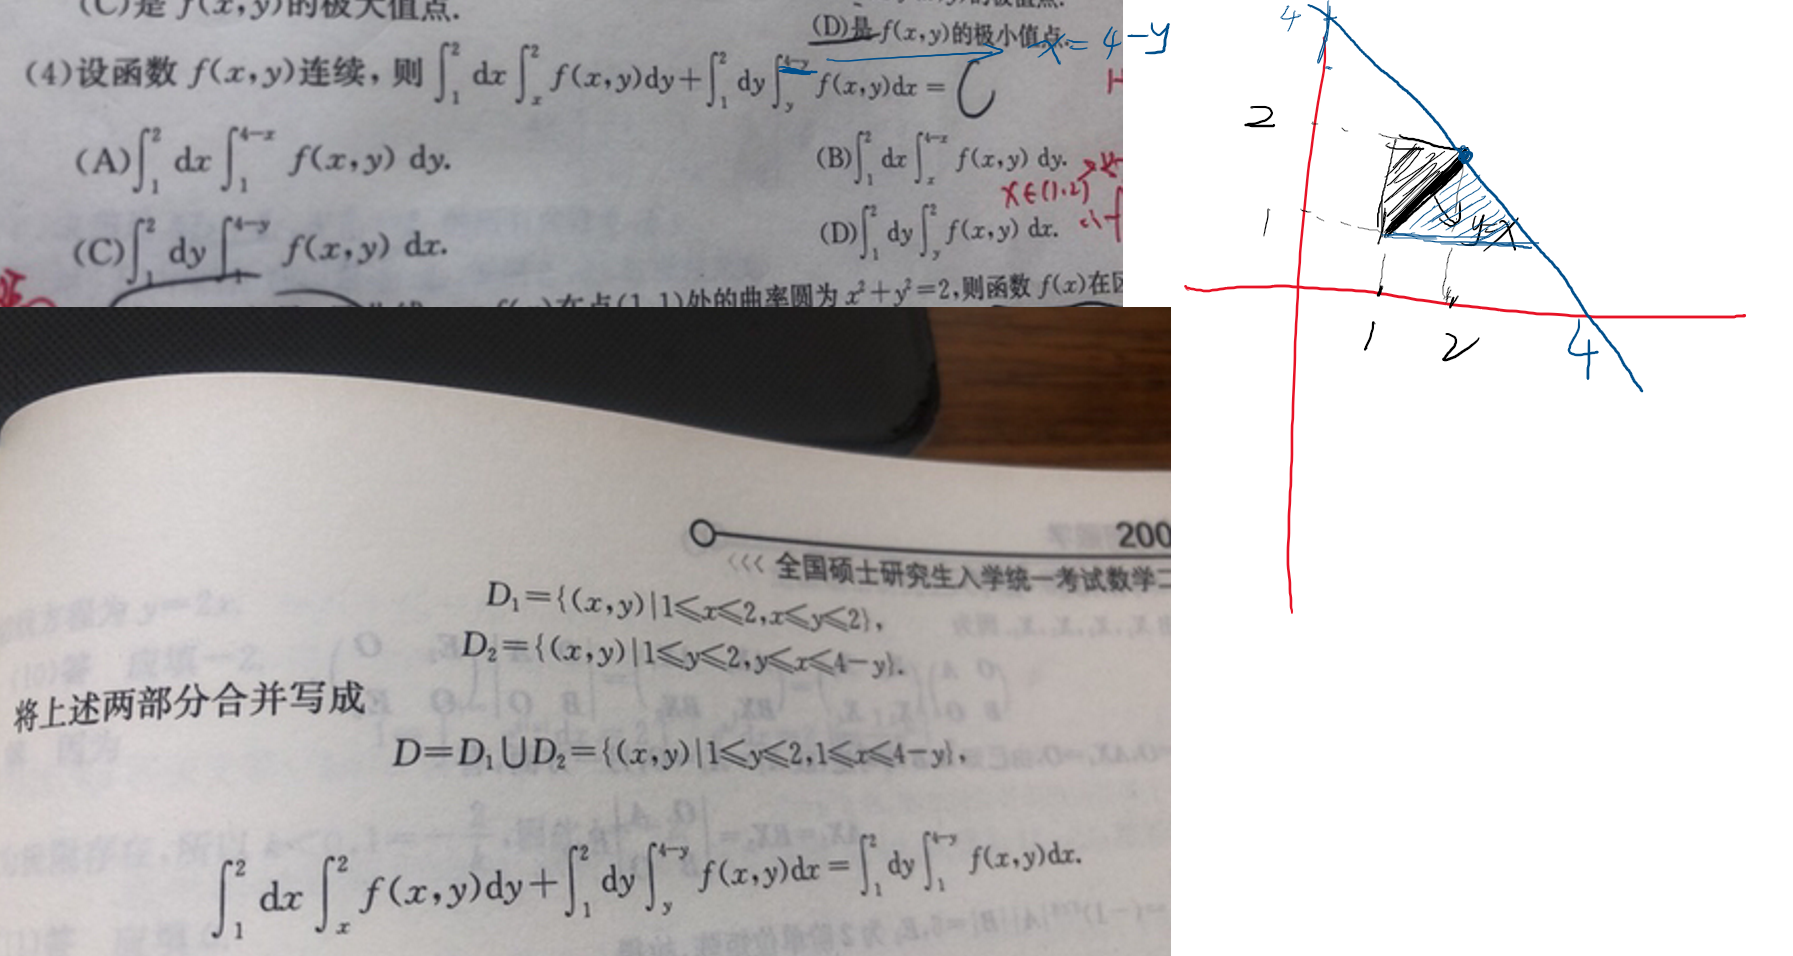 (C)是 f(x,y)的极大值点.
(D)是 f(x,y)的极小值点.
x=4-y
(4)设函数 f(x,y)连续，则∫₁² dx∫ₓ² f(x,y)dy+∫₁² dy∫_y^{4-y} f(x,y)dx= C
(A)∫₁² dx∫₁^{4-x} f(x,y) dy.
(B)∫₁² dx∫ₓ^{4-x} f(x,y) dy.
x∈(1,2)
(C)∫₁² dy∫₁^{4-y} f(x,y) dx.
(D)∫₁² dy∫_y² f(x,y) dx.
f(x)在点(1,1)处的曲率圆为 x²+y²=2,则函数 f(x)在区
4
2
1
y=x
1
2
4
200
<<< 全国硕士研究生入学统一考试数学二
D₁={(x,y)|1≤x≤2,x≤y≤2},
D₂={(x,y)|1≤y≤2,y≤x≤4-y}.
将上述两部分合并写成
D=D₁∪D₂={(x,y)|1≤y≤2,1≤x≤4-y},
∫₁² dx∫ₓ² f(x,y)dy+∫₁² dy∫_y^{4-y} f(x,y)dx=∫₁² dy∫₁^{4-y} f(x,y)dx.